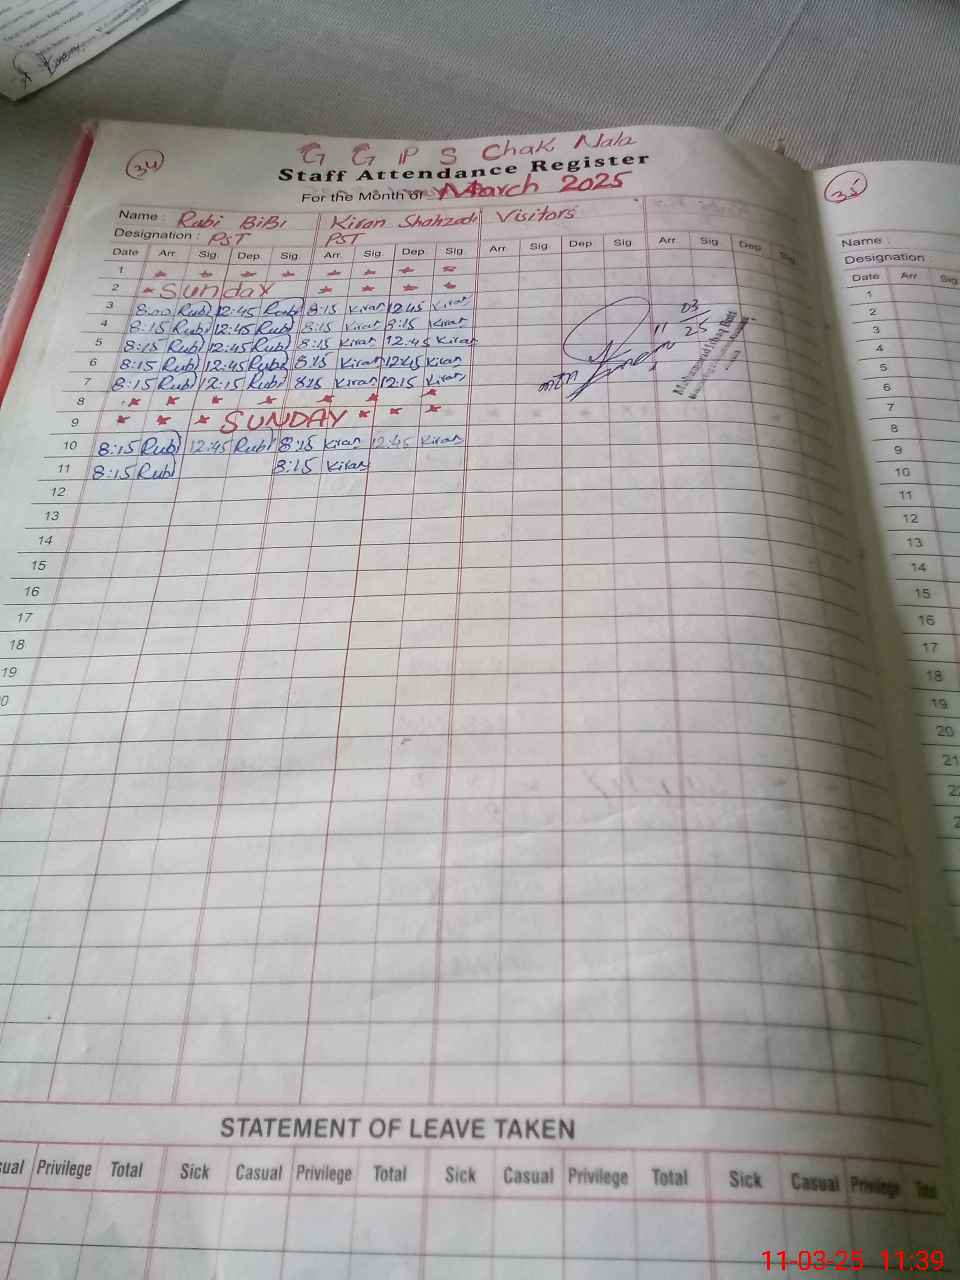 34
G G P S Chak Nala
Staff Attendance Register
For the Month of March 2025
Name : Rubi BiBi Kiran Shahzadi Visitors
Designation : PST PST
Date Arr. Sig. Dep. Sig. Arr. Sig. Dep. Sig. Arr. Sig. Dep. Sig. Arr. Sig. Dep. Sig.
1
2 Sunday
3 8:00 Rubi 12:45 Rubi 8:15 Kiran 12:45 Kiran
4 8:15 Rubi 12:45 Rubi 8:15 Kiran 8:15 Kiran
5 8:15 Rubi 12:45 Rubi 8:15 Kiran 12:45 Kiran
6 8:15 Rubi 12:45 Rubi 8:15 Kiran 12:45 Kiran
7 8:15 Rubi 12:15 Rubi 8:15 Kiran 12:15 Kiran
8
9 SUNDAY
10 8:15 Rubi 12:45 Rubi 8:15 Kiran 12:45 Kiran
11 8:15 Rubi 8:15 Kiran
12
13
14
15
16
17
18
19
11 03 25
STATEMENT OF LEAVE TAKEN
Privilege Total Sick Casual Privilege Total Sick Casual Privilege Total Sick Casual Privilege Total
35
Name :
Designation :
Date Arr. Sig
1
2
3
4
5
6
7
8
9
10
11
12
13
14
15
16
17
18
19
20
21
11-03-25 11:39